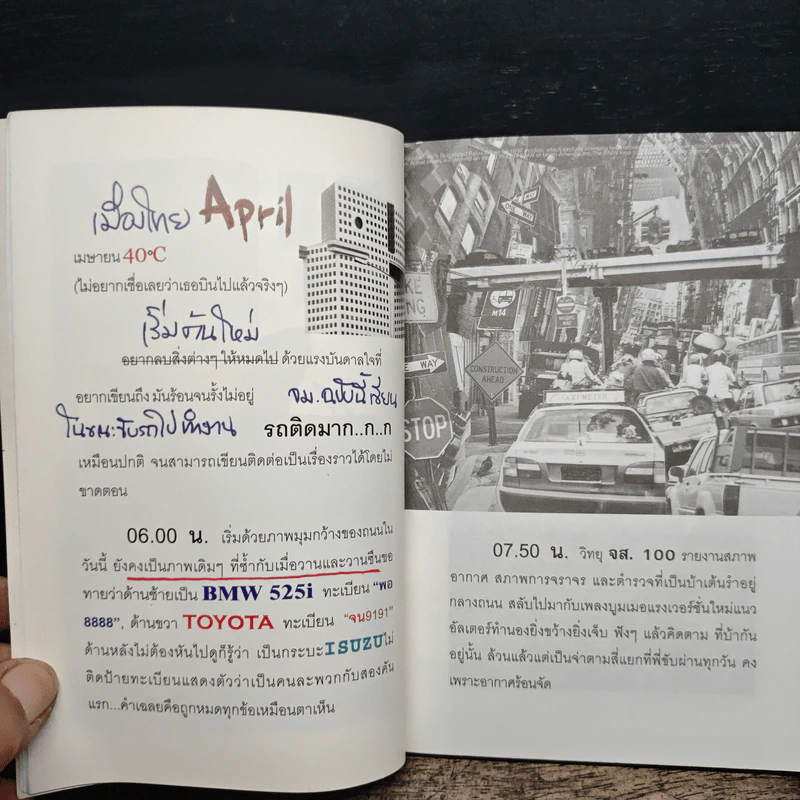 เมืองไทย April
เมษายน 40°C
(ไม่อยากเชื่อเลยว่าเธอบินไปแล้วจริงๆ)
เริ่มต้นใหม่
อยากลบสิ่งต่างๆ ให้หมดไป ด้วยแรงบันดาลใจที่
อยากเขียนถึง มันร้อนจนรั้งไม่อยู่ จม.ฉบับนี้ เขียน
ในขณะขับรถไปทำงาน รถติดมาก..ก..ก
เหมือนปกติ จนสามารถเขียนติดต่อเป็นเรื่องราวได้โดยไม่
ขาดตอน
06.00 น. เริ่มด้วยภาพมุมกว้างของถนนใน
วันนี้ ยังคงเป็นภาพเดิมๆ ที่ซ้ำกับเมื่อวานและวานซืนขอ
ทายว่าด้านซ้ายเป็น BMW 525i ทะเบียน "พอ
8888", ด้านขวา TOYOTA ทะเบียน "จน9191"
ด้านหลังไม่ต้องหันไปดูก็รู้ว่า เป็นกระบะ ISUZU ไม่
ติดป้ายทะเบียนแสดงตัวว่าเป็นคนละพวกกับสองคัน
แรก...คำเฉลยคือถูกหมดทุกข้อเหมือนตาเห็น
M14
CONSTRUCTION
AHEAD
STOP
TAXI-METER
07.50 น. วิทยุ จส. 100 รายงานสภาพ
อากาศ สภาพการจราจร และตำรวจที่เป็นบ้าเต้นรำอยู่
กลางถนน สลับไปมากับเพลงบูมเมอแรงเวอร์ชั่นใหม่แนว
อัลเตอร์ทำนองยิ่งขว้างยิ่งเจ็บ ฟังๆ แล้วคิดตาม ที่บ้ากัน
อยู่นั้น ล้วนแล้วแต่เป็นจ่าตามสี่แยกที่พี่ขับผ่านทุกวัน คง
เพราะอากาศร้อนจัด